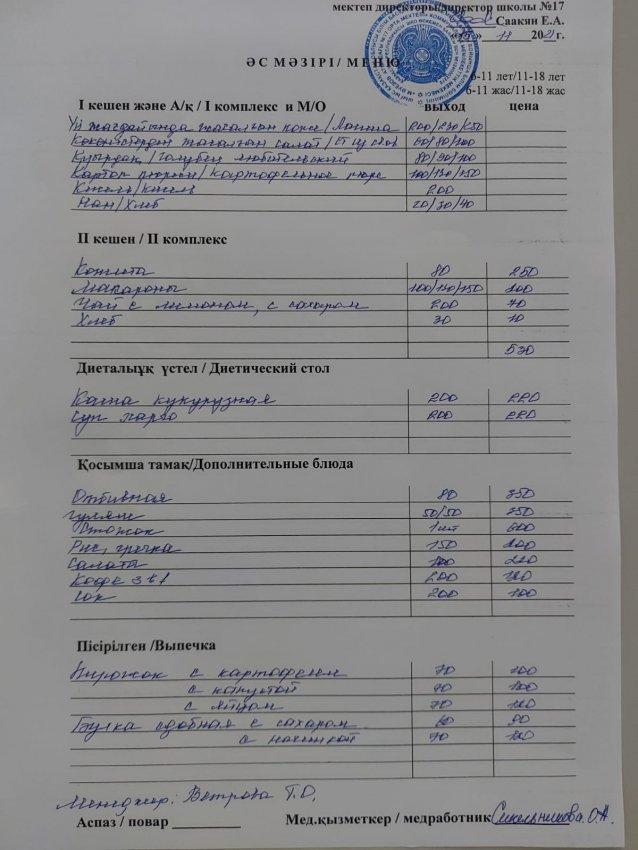 мектеп директоры/директор школы №17
Саакян Е.А.
11 2021г.
ӘС МӘЗІРІ / МЕНЮ
6-11 лет/11-18 лет
6-11 жас/11-18 жас
І кешен және А/қ / І комплекс и М/О выход цена
Үй жағдайында жасалған кеспе/Лапша 200/230/250
Көкөністерден жасалған салат/ 60/80/100
Қуырдақ/Голубец любительский 80/90/100
Картоп пюресі/картофельное пюре 100/130/150
Кисель/кисель 200
Нан/хлеб 20/30/40
ІІ кешен / ІІ комплекс
Котлета 80 250
Макароны 100/130/150 200
Чай с лимоном, с сахаром 200 70
Хлеб 30 10
530
Диеталыұқ үстел / Диетический стол
Каша кукурузная 200 220
Суп харчо 200 220
Қосымша тамақ/Дополнительные блюда
Отбивная 80 350
гуляш 50/50 350
1шт 600
Рис, гречка 150 200
Салаты 100
Кофе 3в1 200
Сок 200 100
Пісірілген /Выпечка
Пирожок с картофелем 70 100
с капустой 70 100
с яйцом 70 100
Булка сдобная с сахаром 60 90
с начинкой 70
Менеджер: Ветрова Т.О.
Аспаз / повар Мед.қызметкер / медработник Сикельникова О.А.